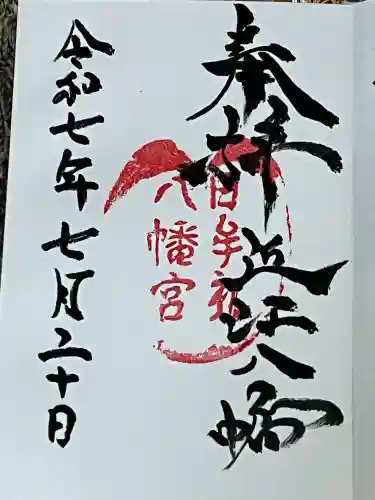 奉拝
近江八幡
日牟禮
八幡宮
令和七年七月二十日